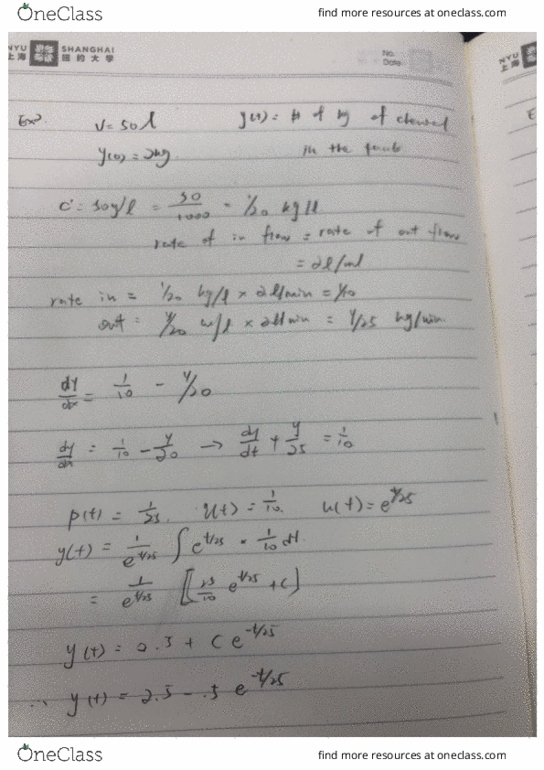 OneClass find more resources at oneclass.com
NYU SHANGHAI NYU
上海 纽约大学 上海
No.
Date
Ex> V = 50 l y(t) = # of kg of
y(0) = 2kg. in the
C = 50g/l = 50/1000 = 1/20 kg/l
rate of in flow = rate of out flow
= 2l/ml
rate in = 1/20 kg/l × 2l/min = 1/10
out = y/20 × 2l/min = y/25 kg/min
dy/dx = 1/10 - y/20
dy/dx = 1/10 - y/20 → dy/dt + y/25 = 1/10
p(t) = 1/25, u(t) = 1/10. u(t) = e^t/25
y(t) = 1/e^t/25 ∫ e^t/25 * 1/10 dt.
= 1/e^t/25 [25/10 e^t/25 + C]
y(t) = 2.5 + C e^-t/25
∴ y(t) = 2.5 - .5 e^-t/25
OneClass find more resources at oneclass.com